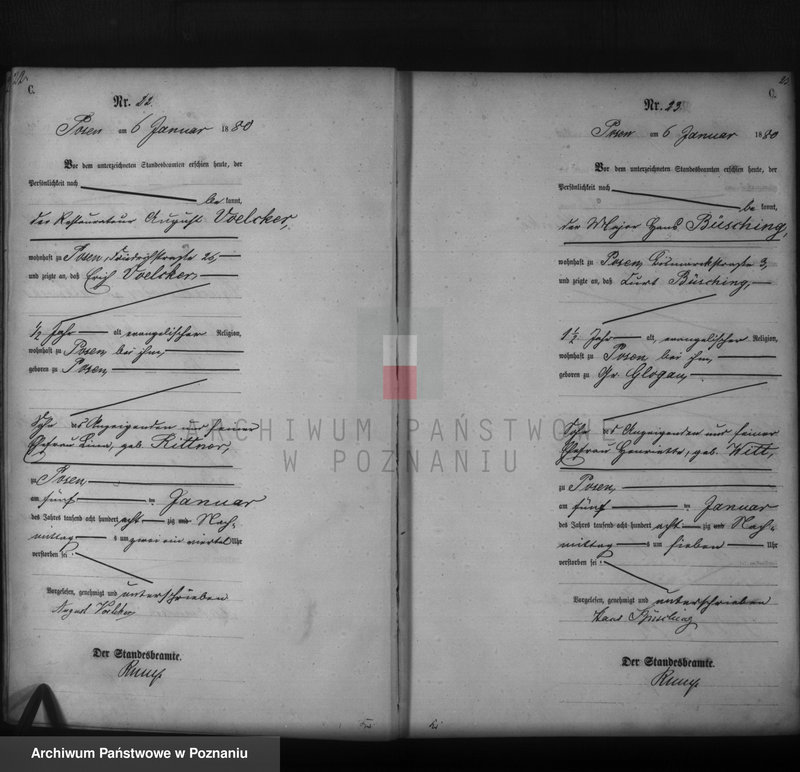 22
C.
Nr. 22.
Posen am 6 Januar 1880
Vor dem unterzeichneten Standesbeamten erschien heute, der
Persönlichkeit nach
be kannt,
der Restaurateur August Voelcker,
wohnhaft zu Posen, Friedrichstraße 26,
und zeigte an, daß Erich Voelcker,
1/2 Jahr alt, evangelischer Religion,
wohnhaft zu Posen bei ihm,
geboren zu Posen,
Sohn des Anzeigenden und seiner
Ehefrau Lina, geb. Rittner,
zu Posen,
am fünf ten Januar
des Jahres tausend acht hundert acht zig und Nach-
mittag s um zwei ein viertel Uhr
verstorben sei
Vorgelesen, genehmigt und unterschrieben
August Voelcker
Der Standesbeamte.
ARCHIWUM PAŃSTWOWE
W POZNANIU
23
C.
Nr. 23.
Posen am 6 Januar 1880
Vor dem unterzeichneten Standesbeamten erschien heute, der
Persönlichkeit nach
be kannt,
der Major Hans Büsching,
wohnhaft zu Posen, Bismarckstraße 3,
und zeigte an, daß Kurt Büsching,
1 1/2 Jahr alt, evangelischer Religion,
wohnhaft zu Posen bei ihm,
geboren zu Gr. Glogau,
Sohn des Anzeigenden und seiner
Ehefrau Henriette, geb. Witt,
zu Posen,
am fünf ten Januar
des Jahres tausend acht hundert acht zig und Nach-
mittag s um sieben Uhr
verstorben sei
Vorgelesen, genehmigt und unterschrieben
Hans Büsching
Der Standesbeamte.
Archiwum Państwowe w Poznaniu